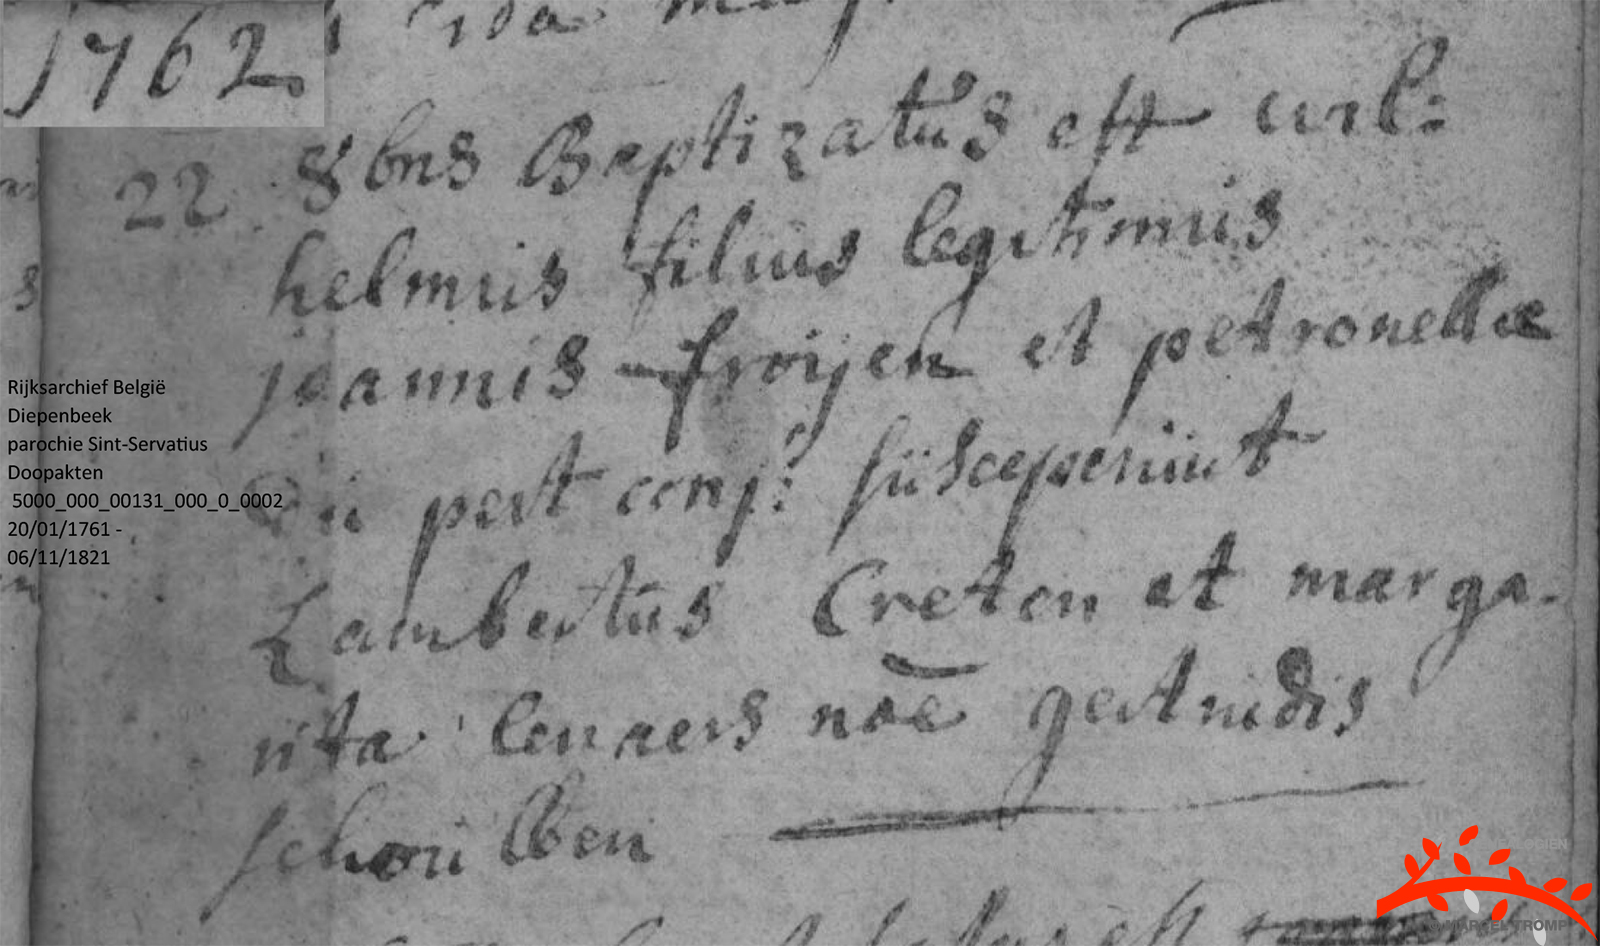 1762
22 8bris Baptizatus est wil:
helmus filius legitimus
joannis froijen et petronellæ
pert conj: susceperunt
Lambertus Creten et marga-
rita lenaers noe gertrudis
schoubben
Rijksarchief België
Diepenbeek
parochie Sint-Servatius
Doopakten
5000_000_00131_000_0_0002
20/01/1761 -
06/11/1821
MARCEL TROMP